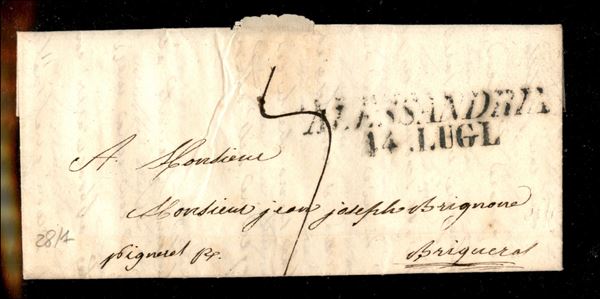 ALESSANDRIA
14 LUGL
A Monsieur
Monsieur jean joseph Brignone
pignerol Pr.
Briqueras
28/7